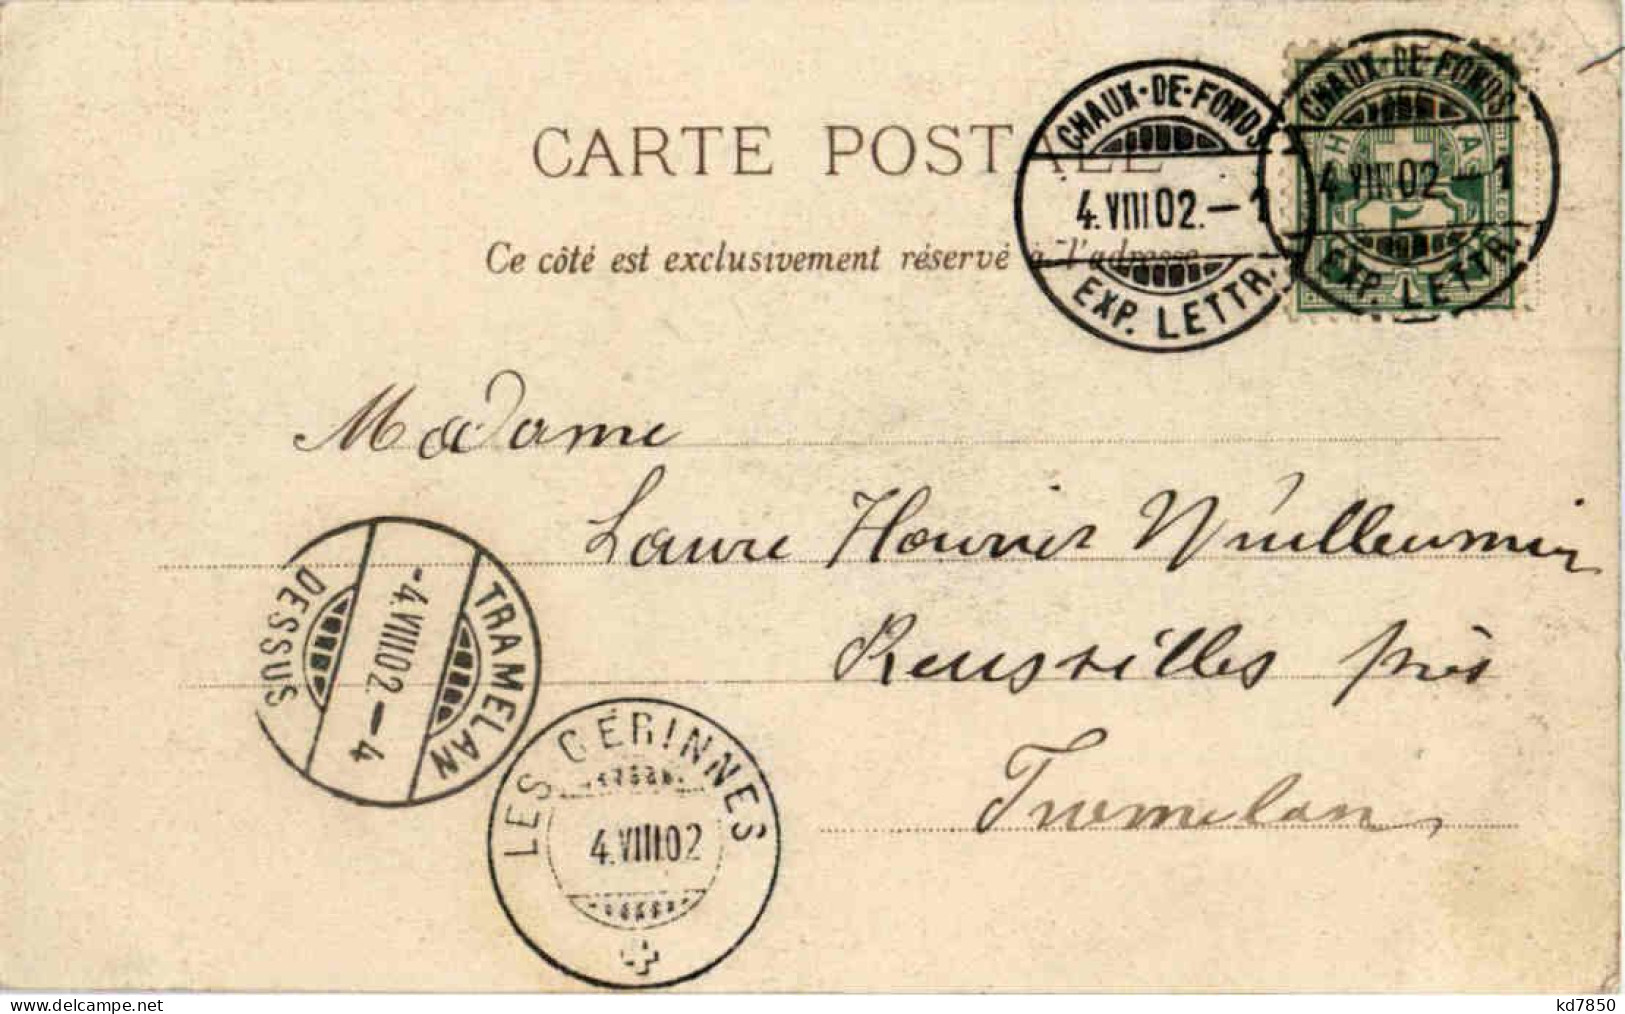 CARTE POSTALE
Ce côté est exclusivement réservé à l'adresse
CHAUX-DE-FONDS
4.VIII 02.–1
EXP. LETTR.
CHAUX-DE-FONDS
4.VIII 02.–1
EXP. LETTR.
5
Madame
Laure Houriet Wuilleumier
Reussilles près
Tramelan
TRAMELAN
-4.VIII 02.–4
DESSUS
LES GÉRINNES
4.VIII 02
www.delcampe.net
kd7850